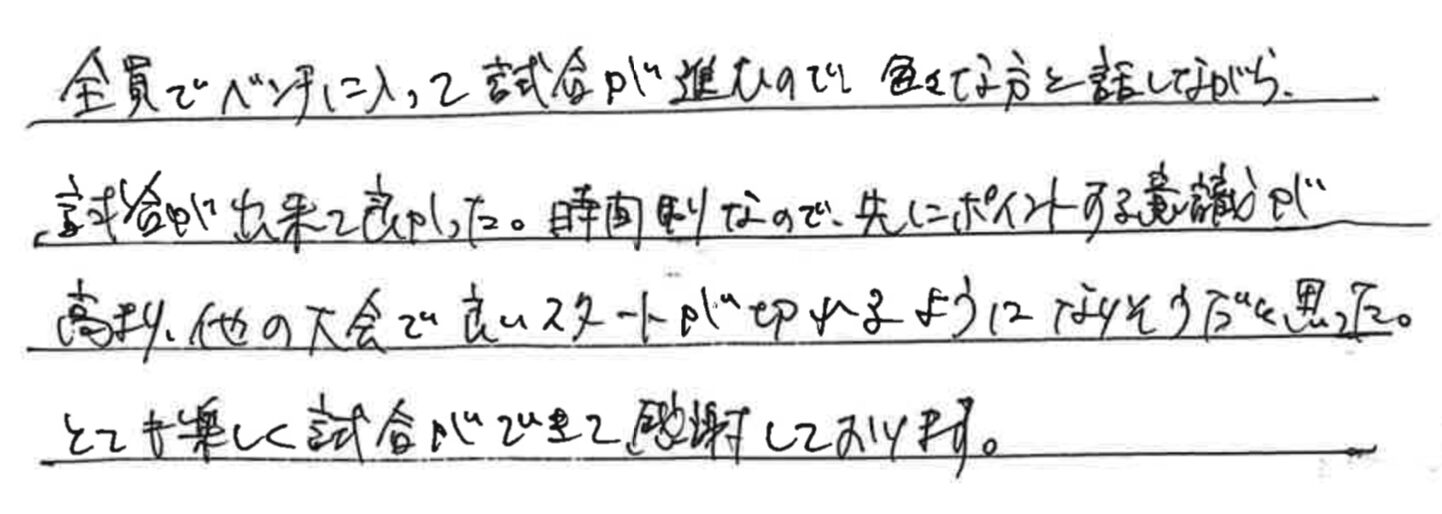 全員でベンチに入って試合が進むので色々な方と話しながら、
試合が出来て良かった。時間制なので、先にポイントする意識が
高まり、他の大会で良いスタートが切れるようになりそうだと思った。
とても楽しく試合ができて感謝しております。